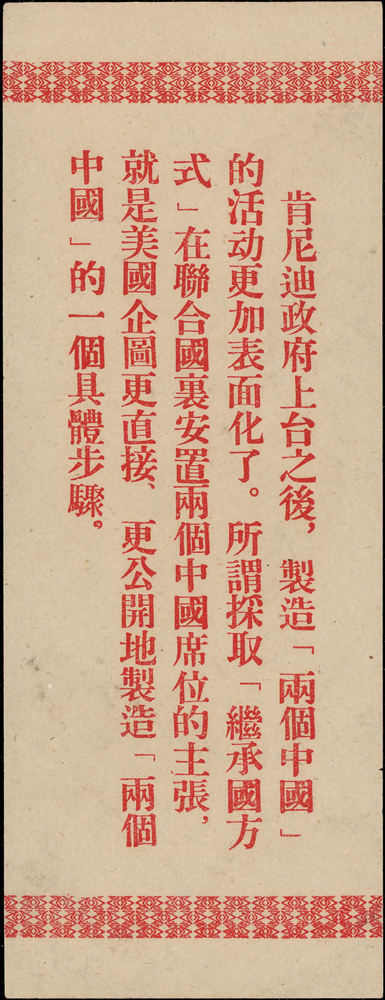 肯尼迪政府上台之後，製造「兩個中國」
的活动更加表面化了。所謂採取「繼承國方
式」在聯合國裏安置兩個中國席位的主張，
就是美國企圖更直接、更公開地製造「兩個
中國」的一個具體步驟。